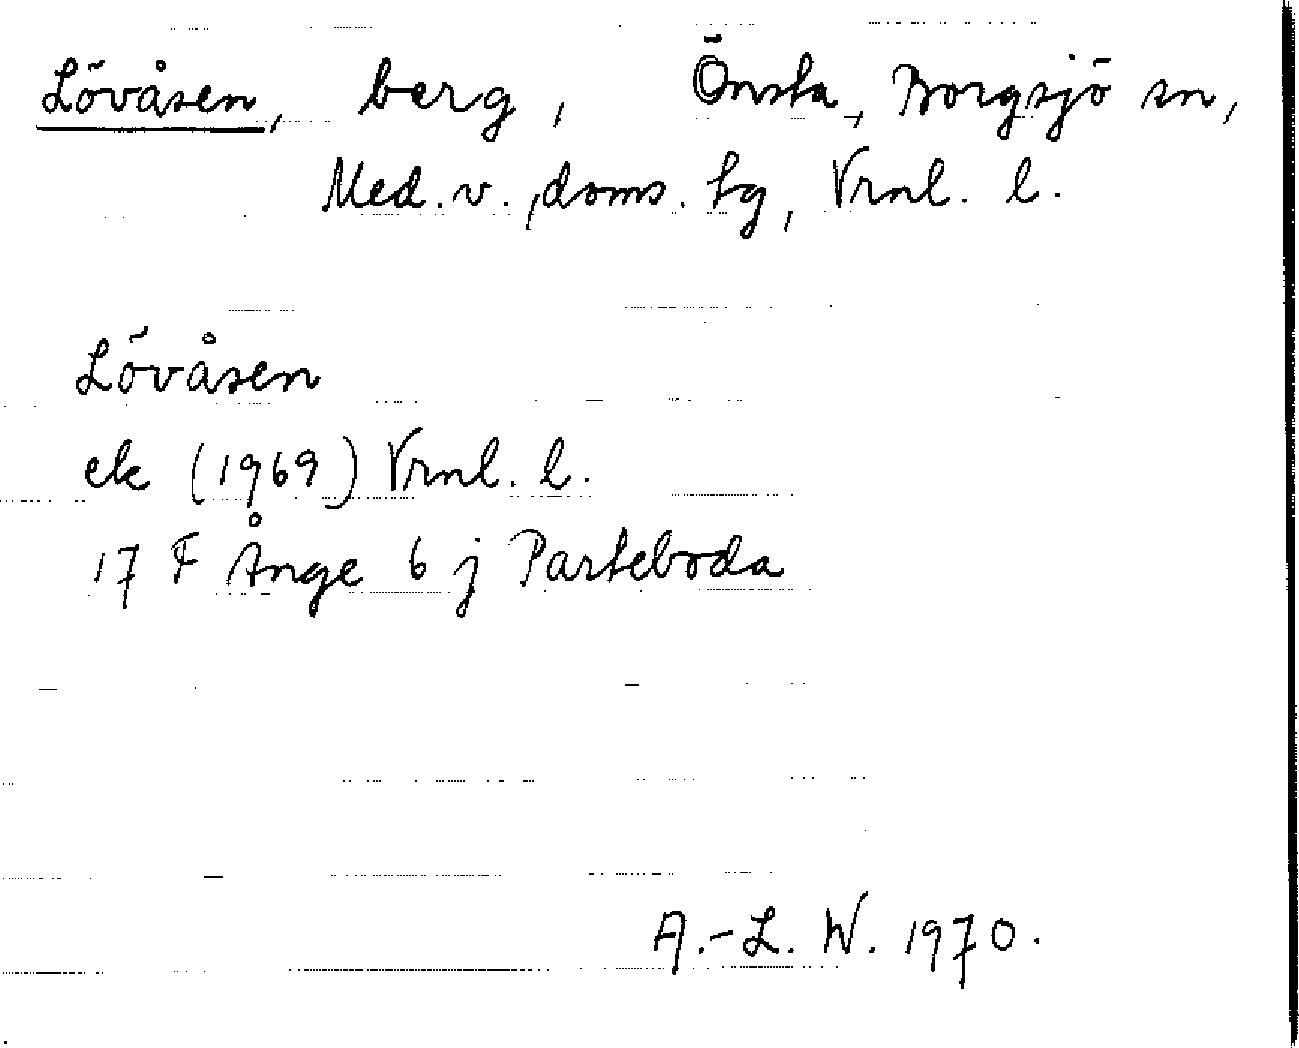 Lövåsen, berg, Önsta, Borgsjö sn,
Med. v., doms. hg, Vrnl. l.
Lövåsen
ek (1969) Vrnl. l.
17 F Ånge 6 j Parteboda
A.-L. W. 1970.